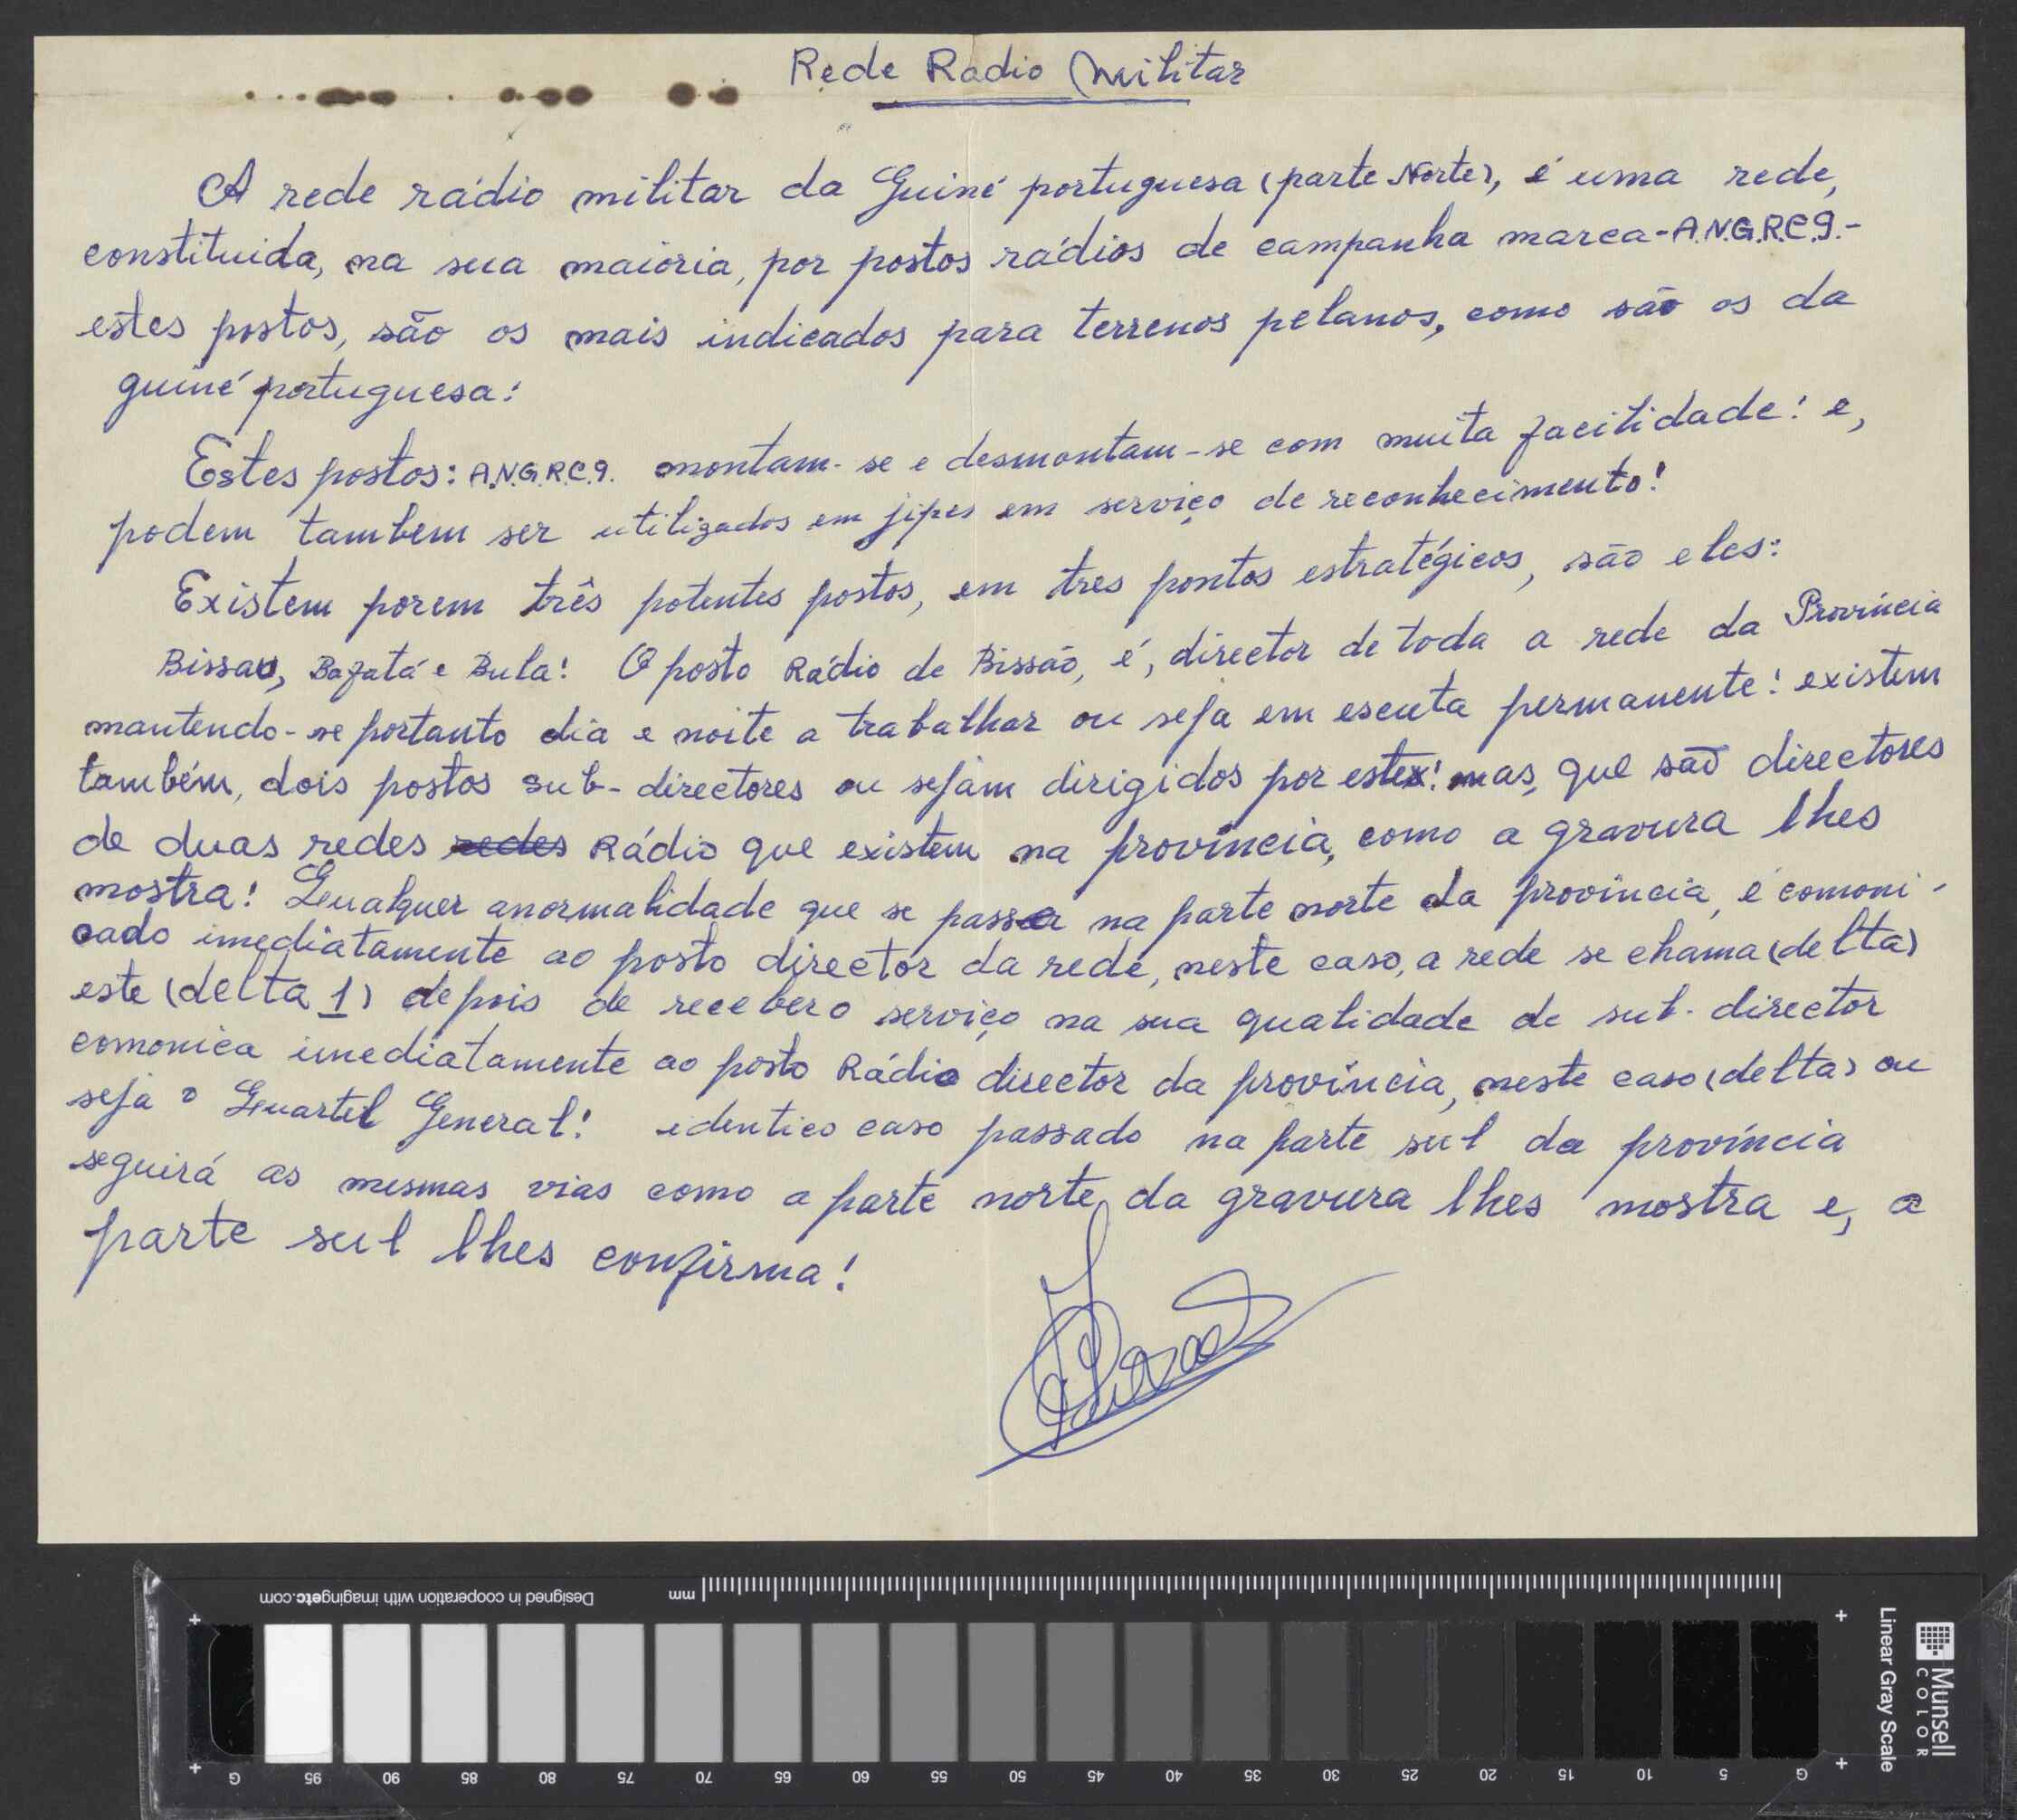 Rede Radio Militar
A rede rádio militar da Guiné portuguesa (parte Norte), é uma rede,
constituida, na sua maioria, por postos rádios de campanha marca-A.N.G.R.C.9.-
estes postos, são os mais indicados para terrenos pelanos, como são os da
guiné portuguesa!
Estes postos: A.N.G.R.C.9. montam-se e desmontam-se com muita facilidade! e,
podem tambem ser utilizados em jipes em serviço de reconhecimento!
Existem porem três potentes postos, em tres pontos estratégicos, são eles:
Bissau, Bafatá e Bula! O posto Rádio de Bissão, é, director de toda a rede da Província
mantendo-se portanto dia e noite a trabalhar ou seja em escuta permanente! existem
também, dois postos sub-directores ou sejam dirigidos por este! mas, que são directores
de duas redes redes Rádio que existem na província, como a gravura lhes
mostra! Qualquer anormalidade que se passa na parte norte da província, é comoni-
cado imediatamente ao posto director da rede, neste caso, a rede se chama (delta)
este (delta 1) depois de receber o serviço na sua qualidade de sub-director
comonica imediatamente ao posto Rádio director da província, neste caso (delta) ou
seja o Quartel General! identico caso passado na parte sul da província
seguirá as mesmas vias como a parte norte, da gravura lhes mostra e, a
parte sul lhes confirma!
Designed in cooperation with imagingetc.com
mm
G 95 90 85 80 75 70 65 60 55 50 45 40 35 30 25 20 15 10 5 G
Linear Gray Scale
Munsell
COLOR